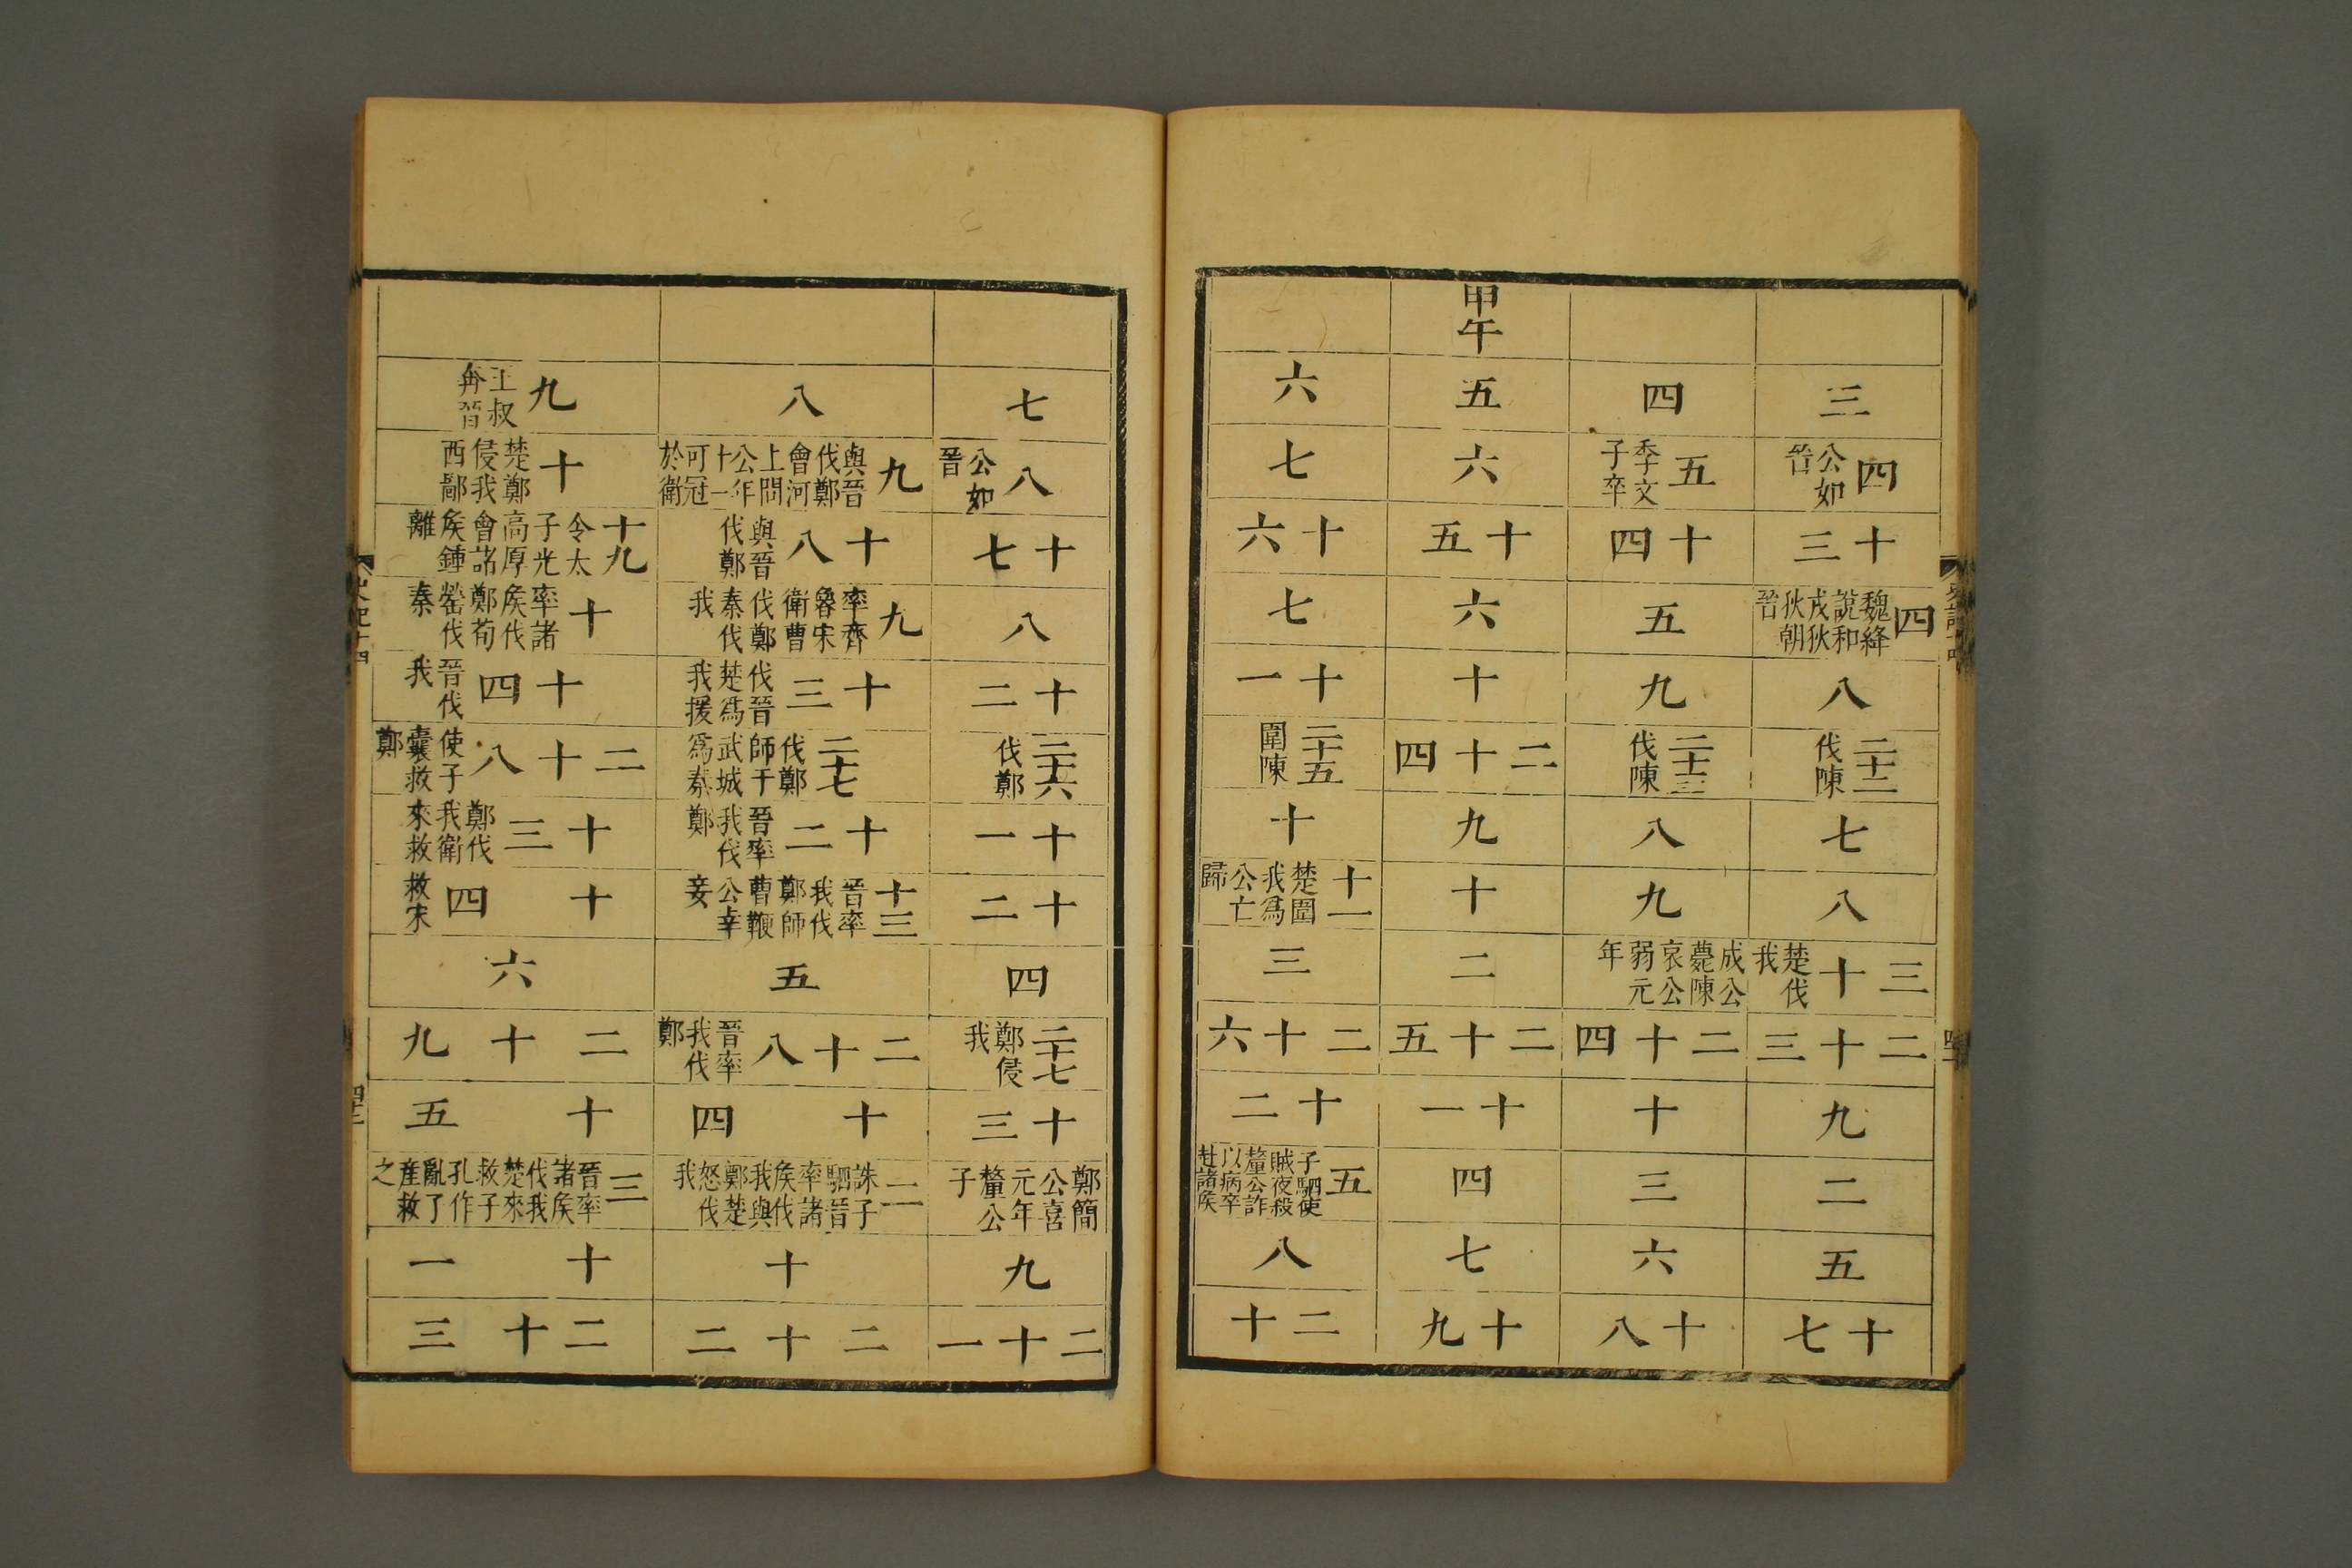 三
四 公如晉
十三
四 魏絳說和戎狄狄朝晉
八
二十二 伐陳
七
八
三十 楚伐我
二十三
九
二
五
十七
四
五 季文子卒
十四
五
九
二十三 伐陳
八
九
成公薨陳哀公弱元年
二十四
十
三
六
十八
甲午
五
六
十五
六
十
二十四
九
十
二
二十五
十一
四
七
十九
六
七
十六
七
十一
二十五 圍陳
十
十一 楚圍我爲公亡歸
三
二十六
十二
五 子駟使賊夜殺釐公詐以病卒赴諸侯
八
二十
七
八 公如晉
十七
八
十二
二十六 伐鄭
十一
十二
四
二十七 鄭侵我
十三
鄭簡公喜元年釐公子
九
二十一
八
九 與晉伐鄭會河上問公年十一可冠於衛
十八 與晉伐鄭
九 率齊魯宋衛曹伐鄭秦伐我
十三 伐晉楚爲我援
二十七 伐鄭師于武城爲秦
十二 晉率我伐鄭
十三 晉率我伐鄭師曹鞭公幸妾
五
二十八 晉率我伐鄭
十四
二 誅子駟晉率諸侯伐我我與楚鄭怒伐我
十
二十二
九 王叔奔晉
十 楚鄭侵我西鄙
十九 令太子光高厚會諸侯鍾離
十 率諸侯伐鄭荀罃伐秦
十四 晉伐我
二十八 使子囊救鄭
十三 鄭伐我衛來救
十四 救宋
六
二十九
十五
三 晉率諸侯伐我楚來救子孔作亂子產救之
十一
二十三
史記十四